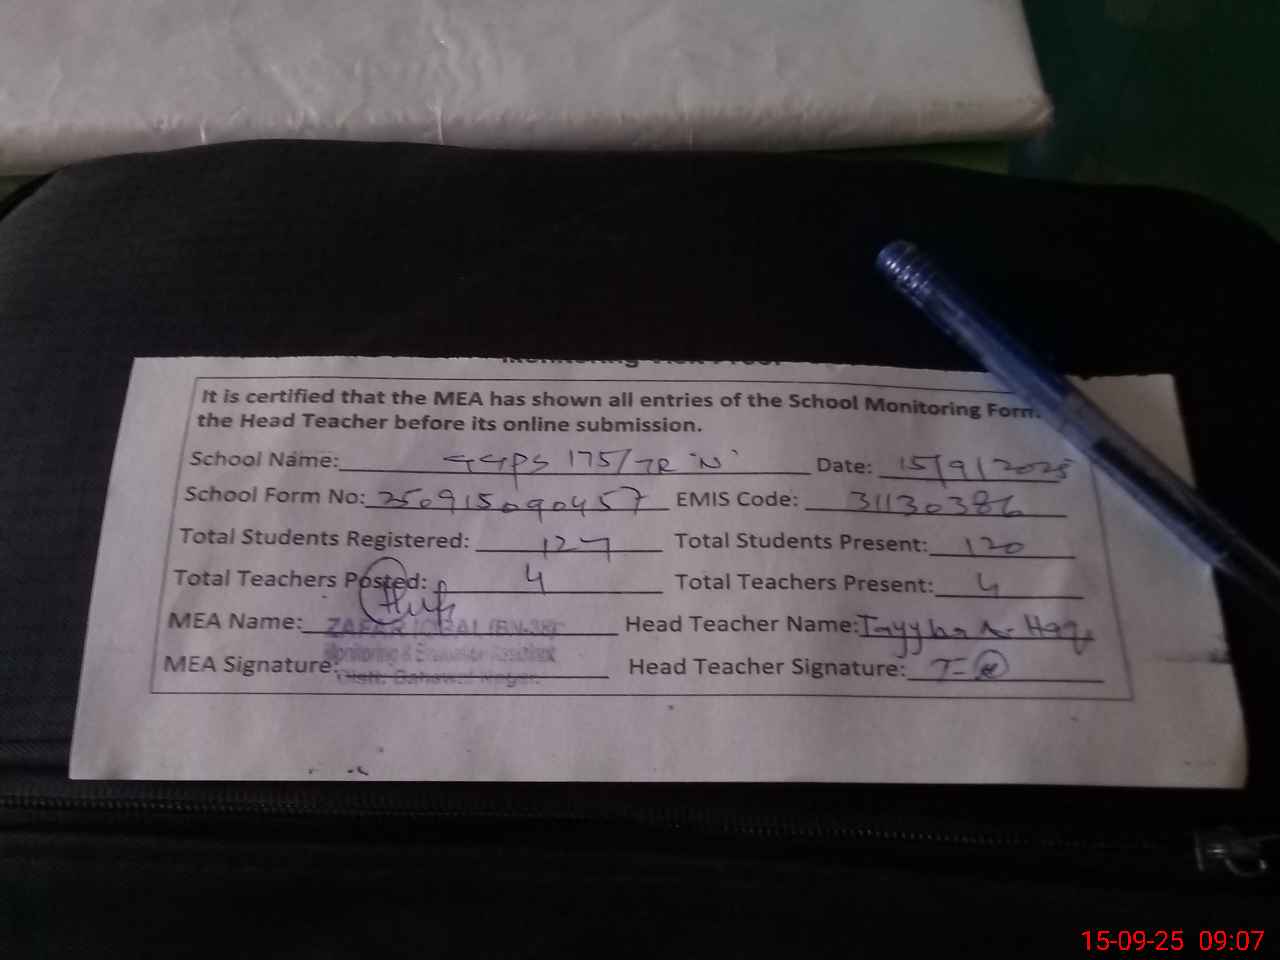 Monitoring Visit Proof
It is certified that the MEA has shown all entries of the School Monitoring Form
the Head Teacher before its online submission.
School Name: GGPS 175/7R 'N' Date: 15/9/2025
School Form No: 250915090457 EMIS Code: 31130386
Total Students Registered: 127 Total Students Present: 120
Total Teachers Posted: 4 Total Teachers Present: 4
MEA Name: ZAFAR IQBAL Head Teacher Name: Tayyba N. Haq
Monitoring & Evaluation Assistant
MEA Signature: Distt. Bahawal Nagar. Head Teacher Signature:
15-09-25 09:07